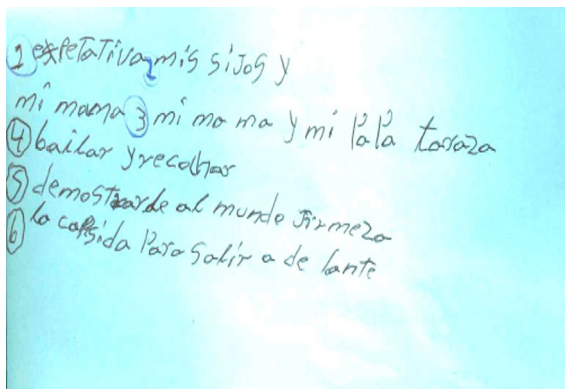 1 expetativa 2 mis sijos y
mi mama 3 mi mo ma y mi PaPa taraza
4 bailar y recochar
5 demostrarle al mundo firmeza
6 la capsida Para Salir a de lante